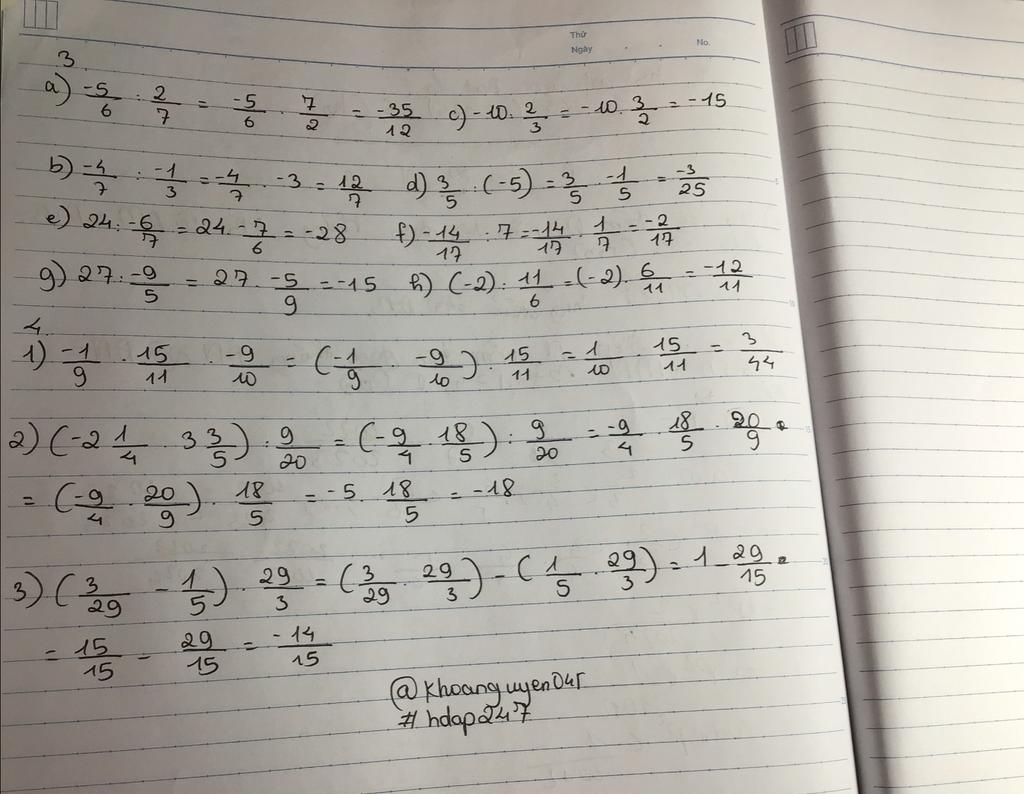 Thứ
Ngày . . No.
3.
a) -5/6 : 2/7 = -5/6 . 7/2 = -35/12 c) -10 . 2/3 = -10 . 3/2 = -15
b) -4/7 : -1/3 = -4/7 . -3 = 12/7 d) 3/5 : (-5) = 3/5 . -1/5 = -3/25
e) 24 : -6/7 = 24 . -7/6 = -28 f) -14/17 : 7 = -14/17 . 1/7 = -2/17
g) 27 : -9/5 = 27 . -5/9 = -15 h) (-2) : 11/6 = (-2) . 6/11 = -12/11
4.
1) -1/9 . 15/11 . -9/10 = (-1/9 . -9/10) . 15/11 = 1/10 . 15/11 = 3/44
2) (-2 1/4 . 3 3/5) : 9/20 = (-9/4 . 18/5) : 9/20 = -9/4 . 18/5 . 20/9
= (-9/4 . 20/9) . 18/5 = -5 . 18/5 = -18
3) (3/29 - 1/5) . 29/3 = (3/29 . 29/3) - (1/5 . 29/3) = 1 - 29/15
= 15/15 - 29/15 = -14/15
@khoanguyen045
#hdap247